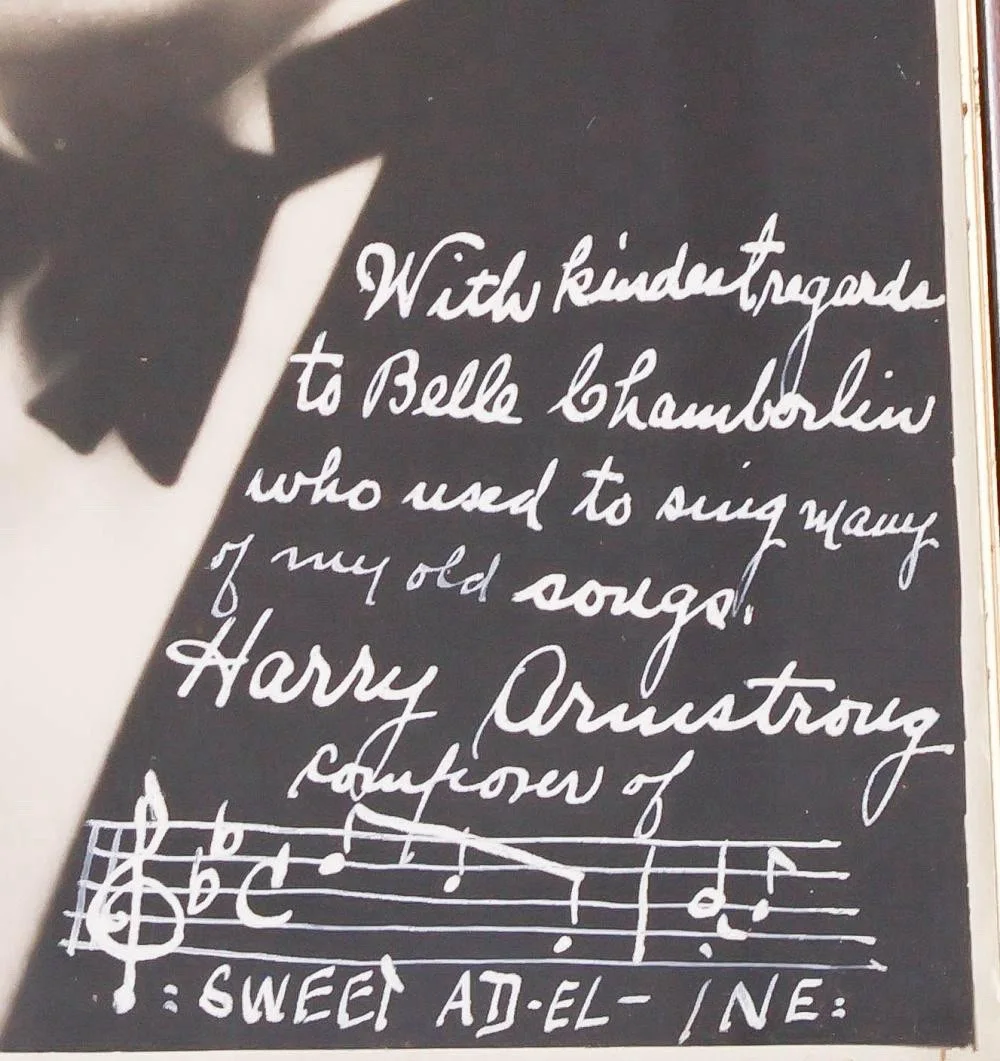 With kindest regards
to Belle Chamberlin
who used to sing many
of my old songs.
Harry Armstrong
composer of
: SWEET AD-EL-INE: